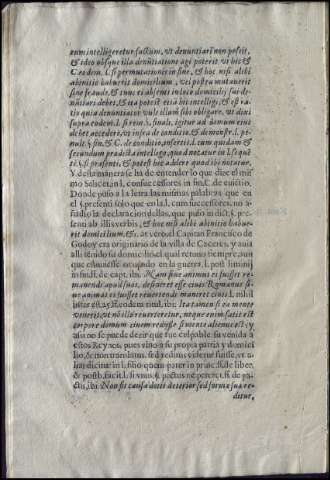 eum intelligeretur factum, vt denuntiari non possit,
& ideo absque illa denuntiatione agi poterit vt hic &
C. eodem l. si permutationis in fine, & hoc nisi alibi
abenitio habuerit domicilium, vel postea mutauerit
sine fraude, & tunc ei absenti in loco domicilij sui de-
nuntiari debet, & ita potest etiã hic intelligi, & est ra-
tio quia denuntiator vult illum sibi obligare, vt dixi
supra eodem l. si rem. §. finali, igitur ad domum eius
debet accedere, vt infra de condictio. & demonstr. l. penult.
§. fin. & C. de condictio. insertis l. cum quidam &
secundum praedicta intellego, quod notatur in l. sequẽ
ti §. si praesenti, & potest hic addere quod ibi notatur.
Y desta manera se ha de entender lo que dize el mis
mo Salicet. in l. consuccessores in fin. C. de euictio.
Donde puso a la letra las mismas palabras que en
el §. praesenti solo que en la l. cum successores, no a-
ñadio la declaracion dellas, que puso in dict. §. praesenti
ab illis verbis, & hoc nisi alibi abenitio habue-
rit domicilium, &c. et c. ero el Capitan Francisco de
Godoy era originario de la villa de Caceres, y auia
alli tenido su domicilio, al qual retuuo siempre, aun
que estuuiesse ocupado en la guerra l. post liminij
in fin. ff. de capt. ibi. Nam sine animus ei fuisset re-
manendi apud suos, desineret esse ciuis Romanus si-
ne animus ei fuisset reuertendi maneret ciuis l. nihil
interest 26. ff. eodem titul. ibi: Ita tamen si ea mente
venerit, vt nolit reuerteretur, neque enim satis est
corpore domum cinem redijsse si mente alienus est; y
assi no se puede dezir que fue culpable su venida a
estos Reynos, pues vino a su propia patria y domici
lio, & non transitans, sed redimus videtur fuisse, et a-
lias dicitur in l. filio quem pater in princ. ff. de liber.
& posth. facit l. si vnus §. pactus ne peteret, ff. de pa-
ctis, ibi. Non sit causa dotis deterior sed formae sua re-
ditur,